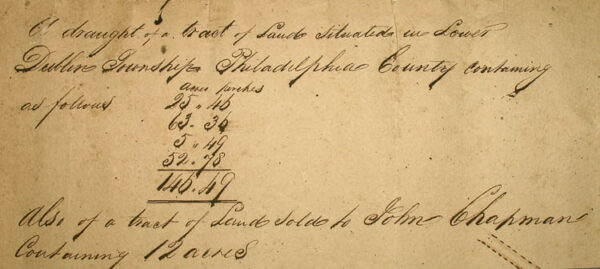 A draught of a tract of Land Situated in Lower
Dublin Township Philadelphia County containing
as follows
acres perches
25 " 46
63 . 36
5 " 49
52 . 78
146 . 49
Also of a tract of Land Sold to John Chapman
Containing 12 acres